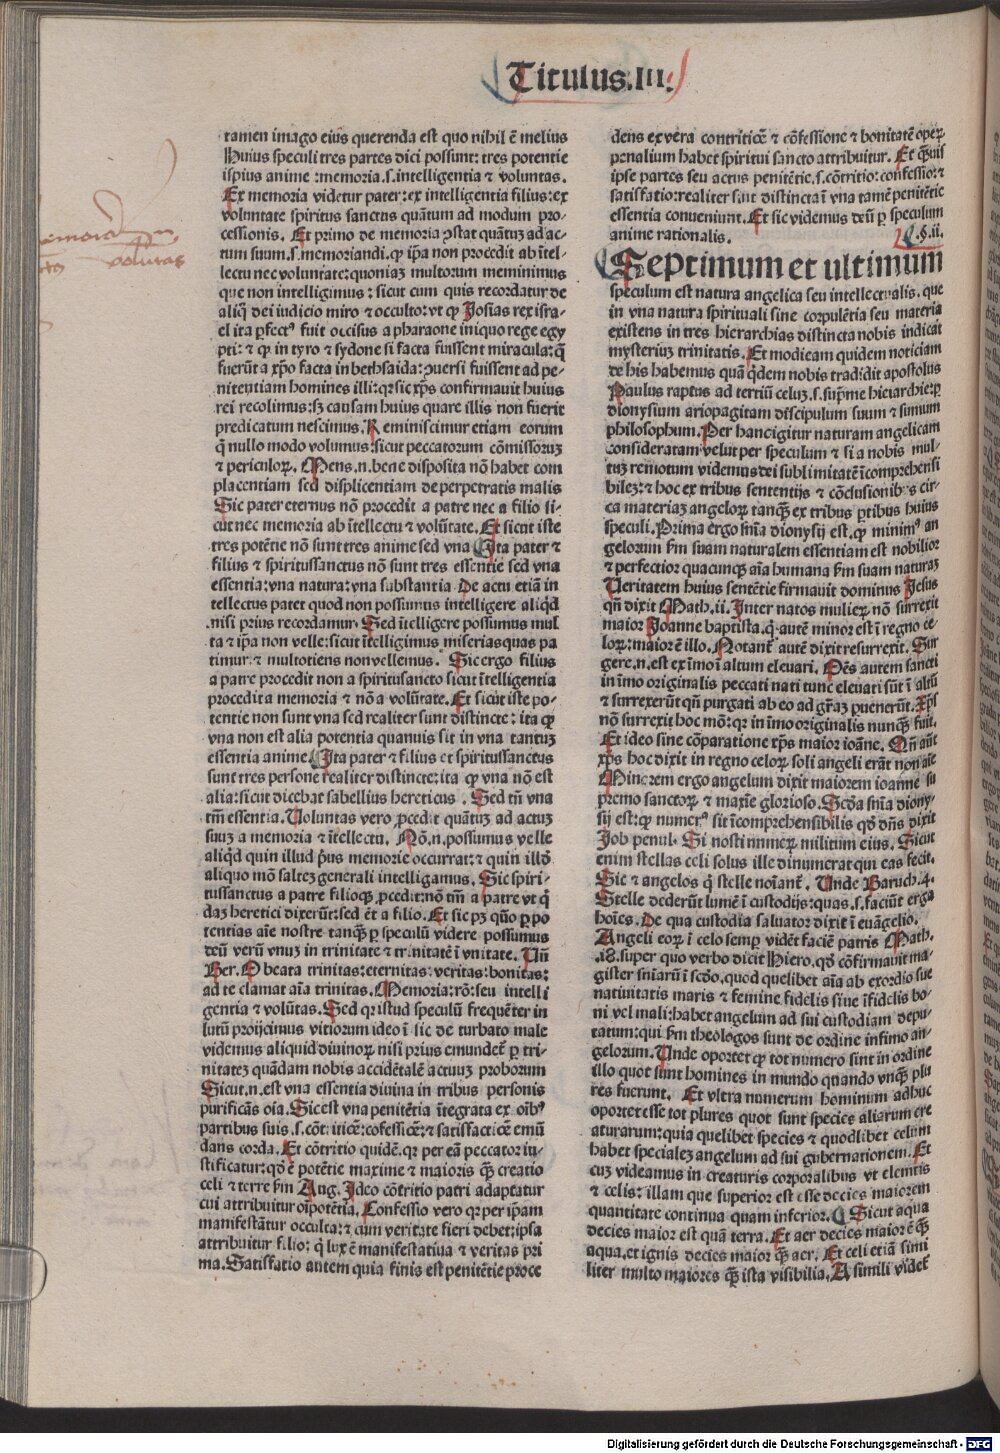 Titulus.III.
tamen imago eius querenda est quo nihil ē melius
Huius speculi tres partes dici possunt: tres potentie
ipsius anime :memoria.s.intelligentia ⁊ voluntas.
Ex memoria videtur pater:ex intelligentia filius:ex
voluntate spiritus sanctus quātum ad modum pro-
cessionis. Et primo de memoria ꝯstat quātuꝫ ad ac-
tum suum.s.memoriandi.ꝙ ip̄a non procedit ab ītel-
lectu nec voluntate:quoniaꝫ multorum meminimus
que non intelligimus: sicut cum quis recordatur de
aliq̄ dei iudicio miro ⁊ occulto:vt ꝙ Josias rex isra-
el ita ꝑfectꝰ fuit occisus a pharaone iniquo rege egy
pti: ⁊ ꝙ in tyro ⁊ sydone si facta fuissent miracula: q̄
fuerūt a xp̄o facta in bethsaida: ꝯuersi fuissent ad pe-
nitentiam homines illi:qꝛ sic xp̄s confirmauit huius
rei recolimus:sꝫ causam huius quare illis non fuerit
predicatum nescimus. Reminiscimur etiam eorum
q̄ nullo modo volumus:sicut peccatorum cōmissoruꝫ
⁊ periculoꝝ. Mens.n.bene disposita nō habet com
placentiam sed displicentiam de perpetratis malis
Sic pater eternus nō procedit a patre nec a filio si-
cut nec memoria ab ītellectu ⁊ volūtate. Et sicut iste
tres potētie nō sunt tres anime sed vna Ita pater ⁊
filius ⁊ spiritussanctus nō sunt tres essentie sed vna
essentia:vna natura:vna substantia. De actu etiā in
tellectus patet quod non possumus intelligere aliqd
.nisi prius recordamur. Sed ītelligere possumus mul
ta ⁊ ip̄a non velle:sicut ītelligimus miserias quas pa
timur. ⁊ multotiens non vellemus. Sic ergo filius
a patre procedit non a spiritusancto sicut ītelligentia
procedit a memoria ⁊ nō a volūtate. Et sicut iste po-
tentie non sunt vna sed realiter sunt distincte: ita ꝙ
vna non est alia potentia quanuis sit in vna tantuꝫ
essentia anime. Ita pater ⁊ filius et spiritussanctus
sunt tres persone realiter distincte:ita ꝙ vna nō est
alia:sicut dicebat sabellius hereticus. Sed tn̄ vna
tm̄ essentia. Voluntas vero ꝓcedit quātuꝫ ad actuꝫ
suuꝫ a memoria ⁊ ītellectu. Nō.n.possumus velle
aliqd quin illud pꝰus memorie occurrat:⁊ quin illd̄
aliquo mō salteꝫ generali intelligamus. Sic spiri-
tussanctus a patre filioqꝫ ꝓcedit:nō tm̄ a patre vt q̄
daꝫ heretici dixerūt:sed ēt a filio. Et sic pꝫ quō ꝑ po
tentias aīe nostre tanqꝫ ꝑ speculū videre possumus
deū verū vnuꝫ in trinitate ⁊ trinitatē ī vnitate. Un̄
Ber. O beata trinitas:eternitas:veritas:bonitas:
ad te clamat aīa trinitas. Memoria:rō:seu intelli
gentia ⁊ volūtas. Sed qꝛ istud speculū frequēter in
lutū proijcimus vitiorum ideo ī sic de turbato male
videmus aliquid diuinoꝝ nisi prius emundet̄ ꝑ tri-
nitateꝫ quādam nobis accidētalē actuuꝫ proborum
Sicut.n.est vna essentia diuina in tribus personis
purificās oīa. Sic est vna penitētia ītegrata ex oībꝰ
partibus suis.s.cōtritiōe:cōfessiōe:⁊ satisfactiōe emū
dans corda. Et cōtritio quidē.qꝛ per eā peccator iu-
stificatur:qd̄ ē potētie maxime ⁊ maioris qꝫ creatio
celi ⁊ terre fm̄ Aug. Ideo cōtritio patri adaptatur
cui attribuitur oīpotētia. Confessio vero qꝛ per ip̄am
manifestātur occulta:⁊ cum veritate fieri debet:ipsa
attribuitur filio: q̄ lux ē manifestatiua ⁊ veritas pri
ma. Satisfatio autem quia finis est penitētie proce
dens ex vera contritiōe ⁊ cōfessione ⁊ bonitatē operꝫ
penalium habet spiritui sancto attribuitur. Et qꝫuis
ipse partes seu actus penitētie.s.cōtritio:confessio:⁊
satisfatio:realiter sint distincta ī vna tamē penitētie
essentia conueniunt. Et sic videmus deū ꝑ speculum
anime rationalis. §.ii.
Septimum et ultimum
speculum est natura angelica seu intellectualis. que
in vna natura spirituali sine corpulētia seu materia
existens in tres hierarchias distincta nobis indicat
mysteriuꝫ trinitatis. Et modicam quidem noticiam
de his habemus quā qdem nobis tradidit apostolus
Paulus raptus ad tertiū celuꝫ.s.supꝛme hierarchie:ꝑ
dionysium ariopagitam discipulum suum ⁊ summum
philosophum. Per hanc igitur naturam angelicam
consideratam velut per speculum ⁊ si a nobis mul-
tuꝫ remotum videmus dei sublimitatē īcomprehensi
bileꝫ:⁊ hoc ex tribus sententijs ⁊ cōclusionibus cir-
ca materiaꝫ angeloꝝ tanqꝫ ex tribus ꝑtibus huius
speculi. Prima ergo sn̄ia dionysij est.ꝙ minimꝰ an
gelorum fm̄ suam naturalem essentiam est nobilior
⁊ perfectior quacunqꝫ aīa humana fm̄ suam naturaꝫ
Veritatem huius sentētie firmauit dominus Jesus
qn̄ dixit Math.ii. Inter natos mulieꝝ nō surrexit
maior Joanne baptista.q̄ autē minor est ī regno ce-
loꝝ:maior ē illo. Notant̄ autē dixit resurrexit. Sur
gere.n.est ex īmo ī altum eleuari. Oēs autem sancti
in īmo originalis peccati nati tunc eleuati sūt ī altū
⁊ surrexerūt qn̄ purgati ab eo ad gr̄aꝫ ꝑuenerūt. Xp̄s
nō surrexit hoc mō:qꝛ in īmo originalis nunqꝫ fuit.
Et ideo sine cōparatione xp̄s maior ioāne. Qn̄ aūt
xp̄s hoc dixit in regno celoꝝ soli angeli erāt non aīe
Minorem ergo angelum dixit maiorem ioanne su
premo sanctoꝝ ⁊ maxīe glorioso. Scd̄a sn̄ia diony
sij est:ꝙ numerꝰ sit īcomprehensibilis qd̄ dn̄s dixit
Job penul. Si nosti numeꝝ militum eius. Sicut
enim stellas celi solus ille dinumerat qui eas fecit.
Sic ⁊ angelos q̄ stelle noīant̄. Unde Baruch.4.
Stelle dederūt lumē ī custodijs:quas.s.faciūt erga
hoīes. De qua custodia saluator dixit ī euāgelio.
Angeli eoꝝ ī celo semꝑ vidēt faciē patris Math.
.18.super quo verbo dicit Hiero.qd̄ cōfirmauit ma-
gister sn̄iarū ī scd̄o.quod quelibet aīa ab exordio sue
natiuitatis maris ⁊ femine fidelis siue īfidelis bo-
ni vel mali:habet angelum ad sui custodiam depu-
tatum:qui fm̄ theologos sunt de ordine infimo an-
gelorum. Unde oportet ꝙ tot numero sint in ordine
illo quot sunt homines in mundo quando vnqꝫ plu
res fuerunt. Et vltra numerum hominum adhuc
oportet esse tot plures quot sunt species aliarum cre
aturarum:quia quelibet species ⁊ quodlibet celum
habet specialeꝫ angelum ad sui gubernationem. Et
cuꝫ videamus in creaturis corporalibus vt elemtis
⁊ celis: illam que superior est esse decies maiorem
quantitate continua quam inferior. Sicut aqua
decies maior est quā terra. Et aer decies maior ē qꝫ
aqua.et ignis decies maior qꝫ aer. Et celi etiā simi
liter multo maiores qꝫ ista visibilia. A simili videt̄
Digitalisierung gefördert durch die Deutsche Forschungsgemeinschaft - DFG